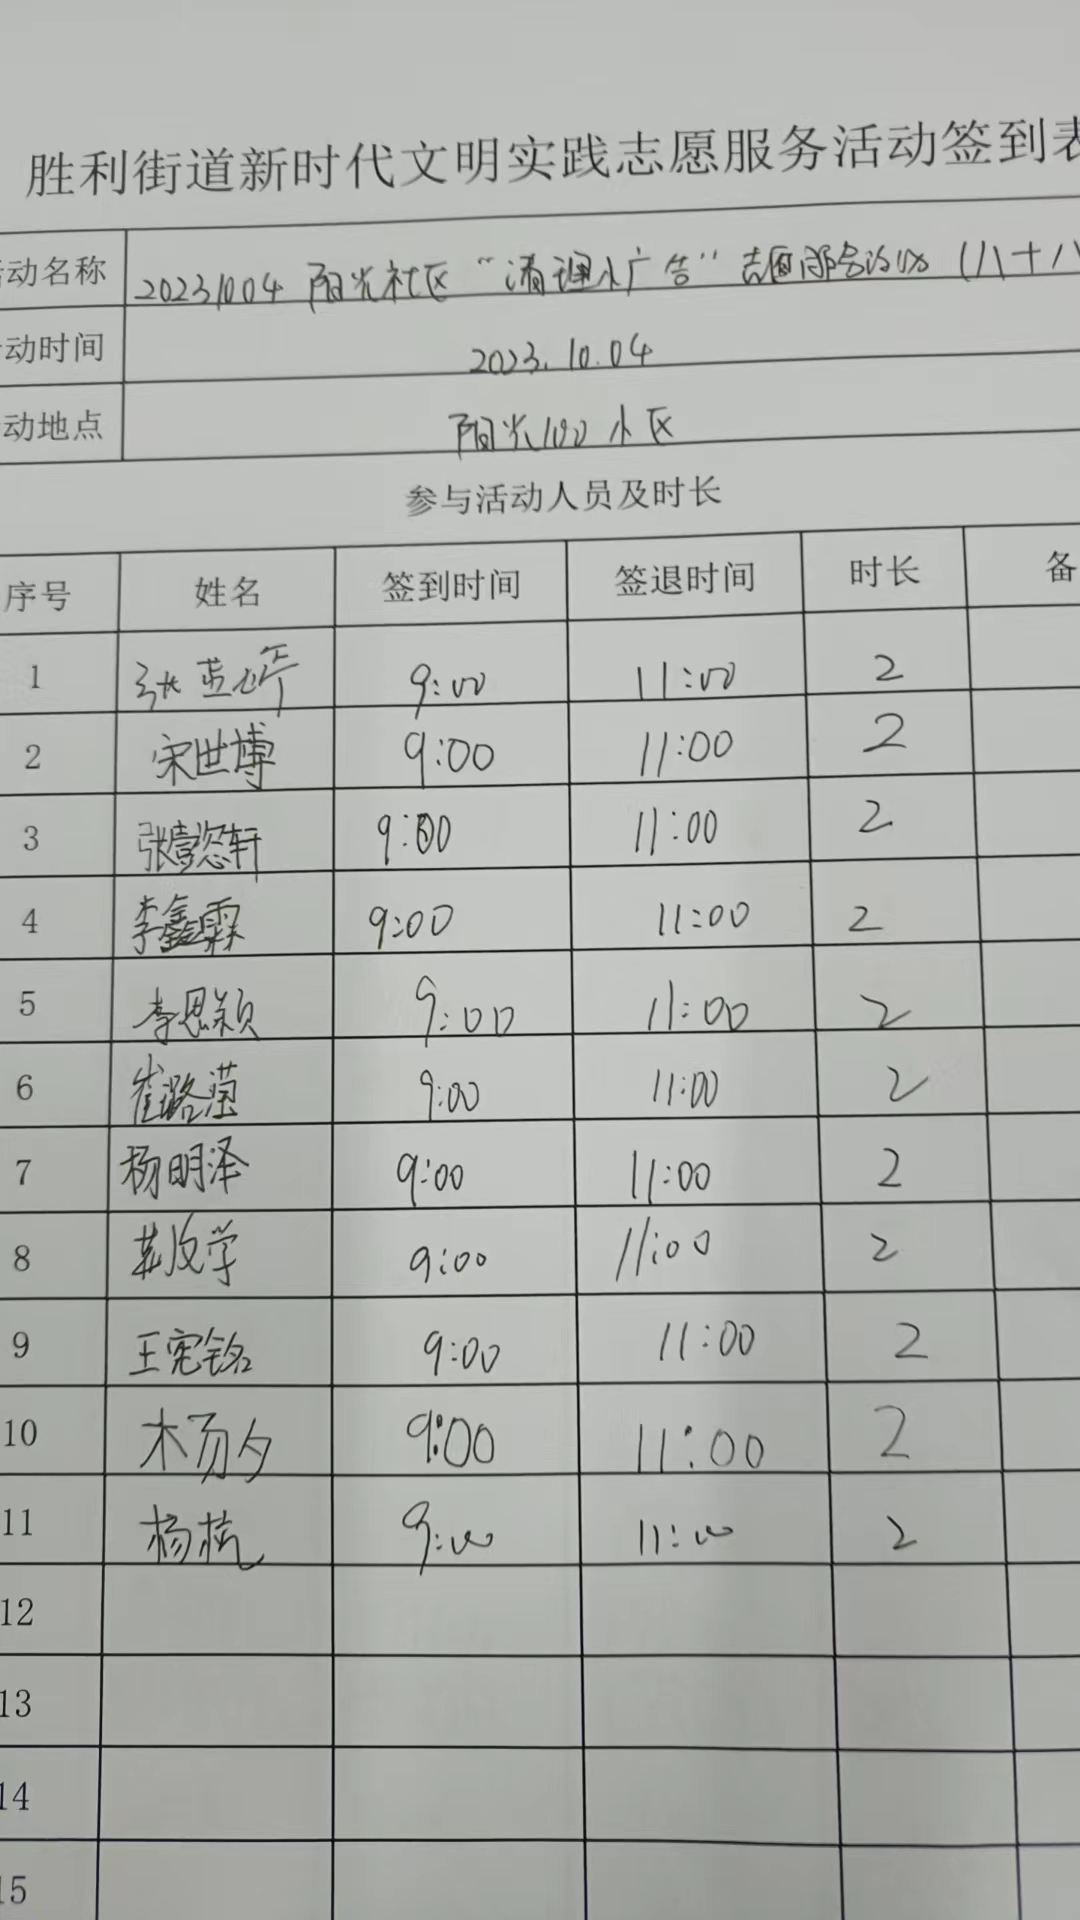 胜利街道新时代文明实践志愿服务活动签到表
活动名称 20231004 阳光社区“清理小广告”志愿服务活动（八十八
动时间 2023.10.04
动地点 阳光100小区
参与活动人员及时长
序号 姓名 签到时间 签退时间 时长 备
1 9:00 11:00 2
2 宋世博 9:00 11:00 2
3 9:00 11:00 2
4 李鑫霖 9:00 11:00 2
5 李思颖 9:00 11:00 2
6 崔璐滢 9:00 11:00 2
7 杨明泽 9:00 11:00 2
8 9:00 11:00 2
9 王宪铭 9:00 11:00 2
10 9:00 11:00 2
11 杨梳 9:00 11:00 2
12
13
14
15